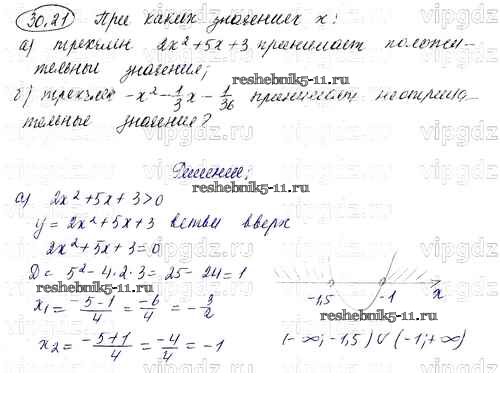 30.21 При каких значениях x:
а) трехчлен 2x²+5x+3 принимает положи-
тельные значения;
reshebnik5-11.ru
б) трехчлен -x² - 1/3 x - 1/36 принимает неотрица-
тельные значение?
Решение:
reshebnik5-11.ru
а) 2x²+5x+3>0
y = 2x²+5x+3 ветви вверх
2x²+5x+3=0
D = 5²-4·2·3=25-24=1
x₁ = (-5-1)/4 = -6/4 = -3/2
-1,5 -1 x
x₂ = (-5+1)/4 = -4/4 = -1
(-∞; -1,5) ∪ (-1; +∞)
reshebnik5-11.ru
vipgdz.ru